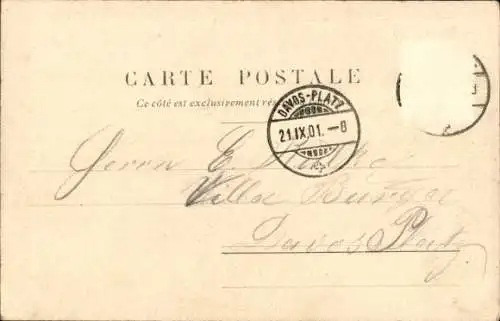 CARTE POSTALE
Ce côté est exclusivement rés
DAVOS-PLATZ
21.IX.01.-8
Herrn E.
Villa Burger
Davos Platz